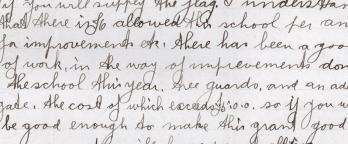 if you will supply the flag. I understan
that there is £6 allowed this school per an
for improvements etc. There has been a goo
of work, in the way of improvements don
the school this year, tree guards, and an ad
gate, the cost of which exceeds so if you w
be good enough to make this grant good